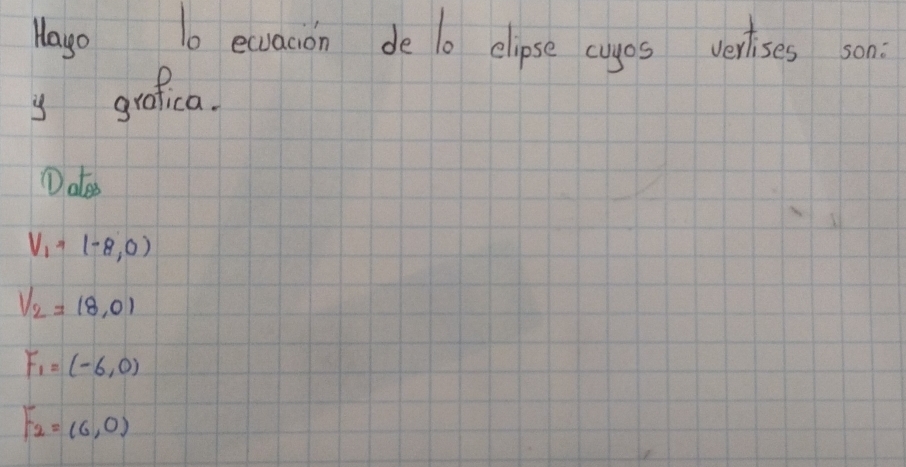 Hayo lo ecuación de lo elipse cuyos vertises son:
y grafica.
Datos
V₁ = (-8,0)
V₂ = (8,0)
F₁ = (-6,0)
F₂ = (6,0)